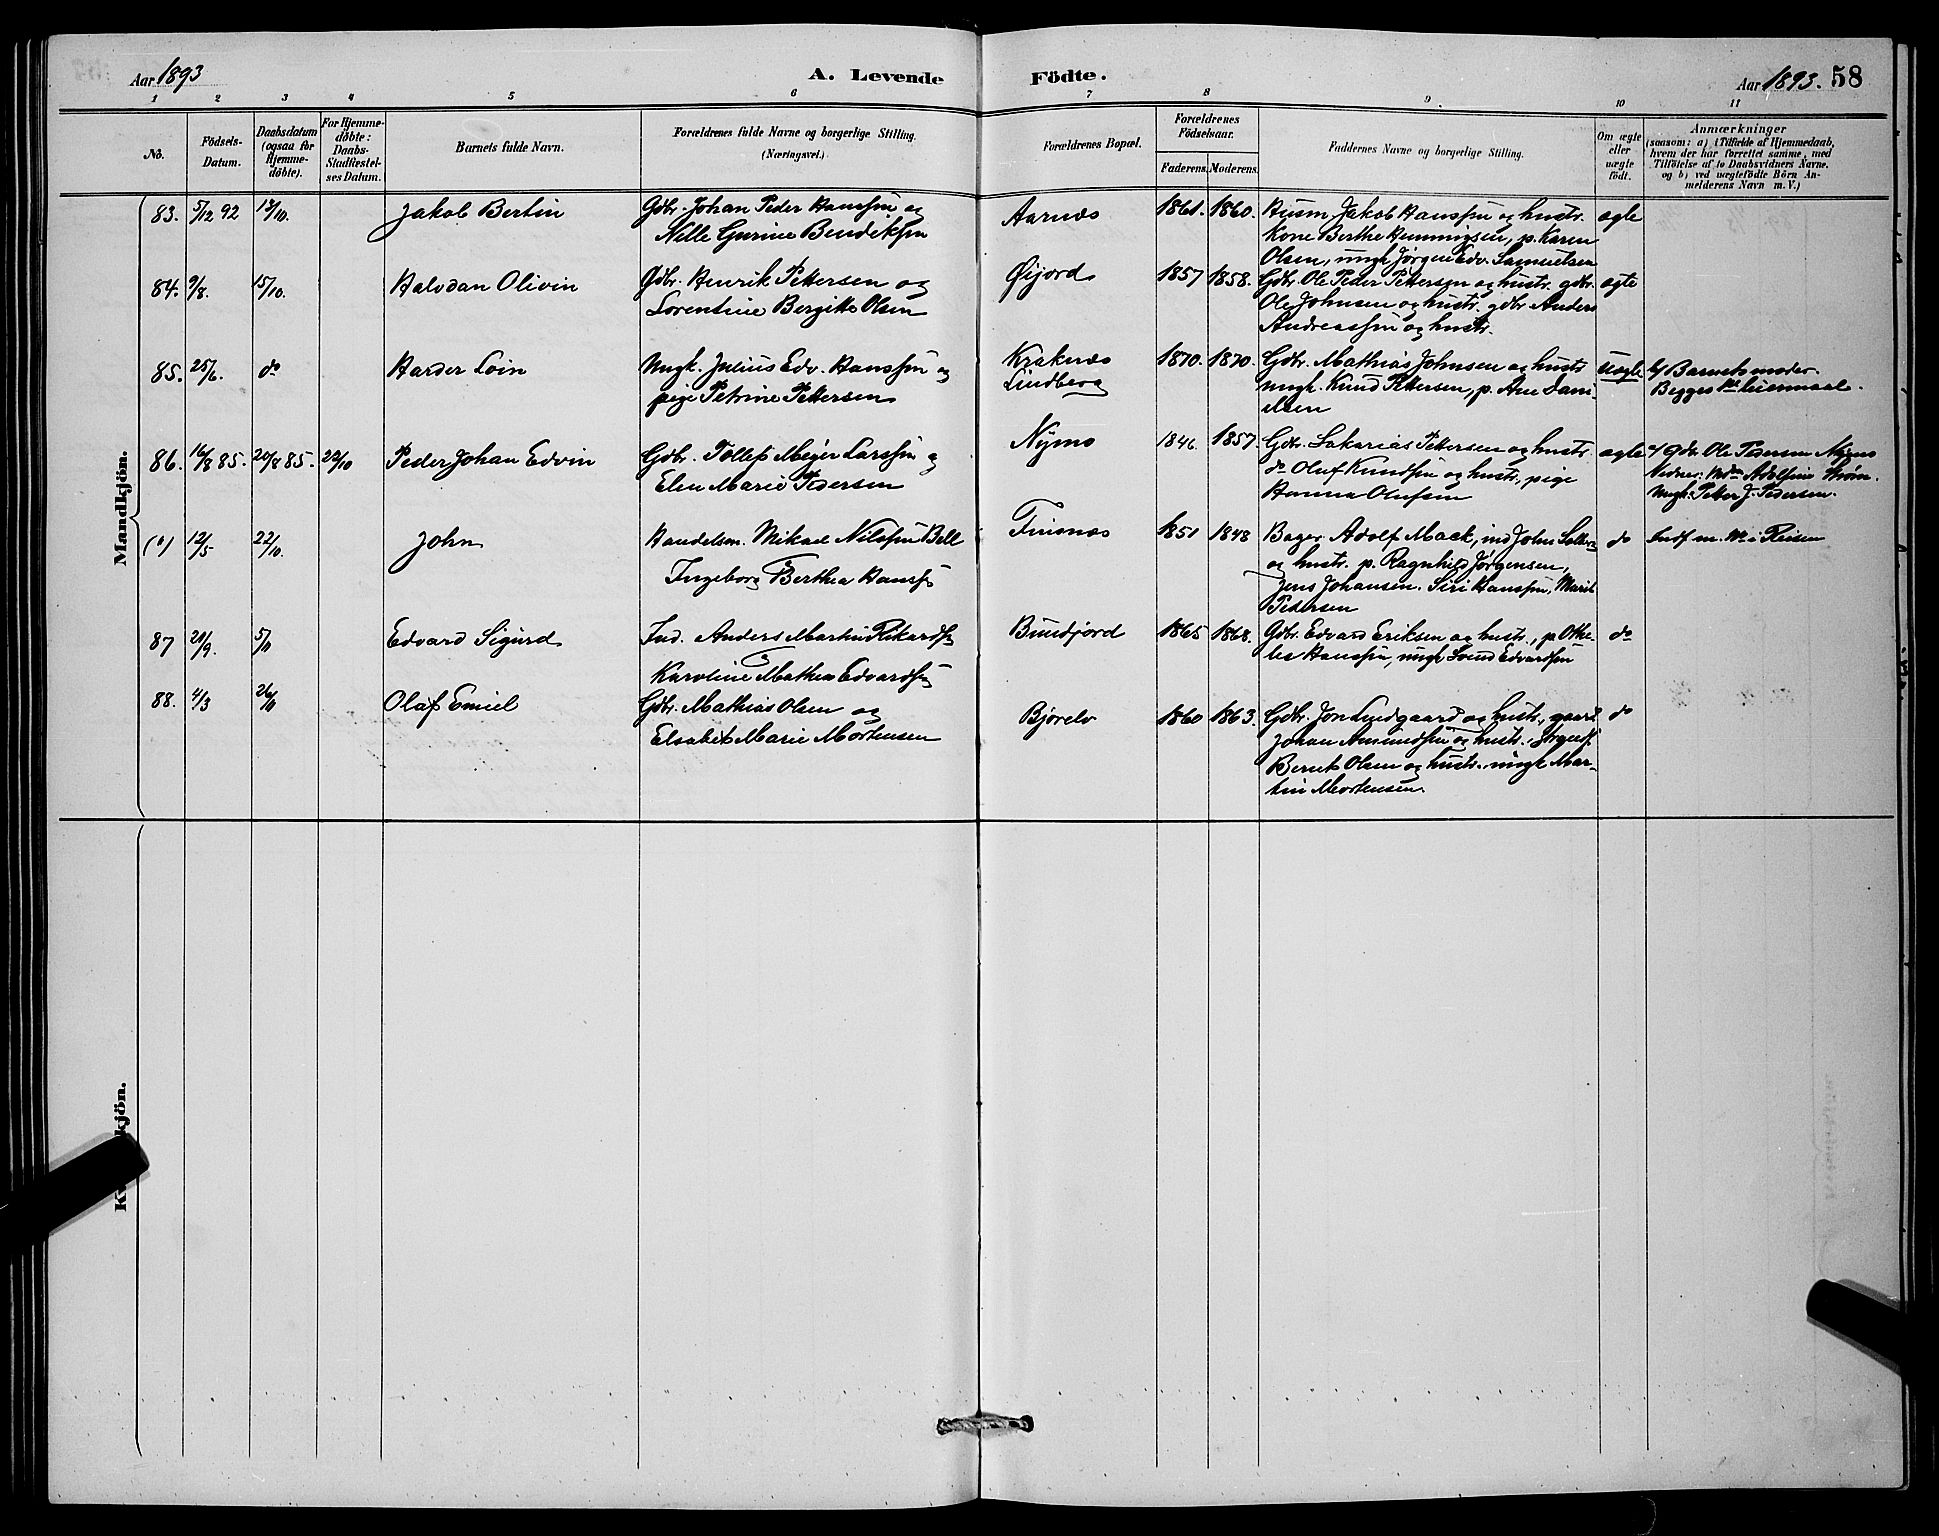 Aar 1893
A. Levende Födte.
Aar 1893. 58
1 2 3 4 5 6 7 8 9. 10 11
No.
Födsels-
Datum.
Daabsdatum
(ogsaa for
Hjemme-
döbte).
For Hjemme-
döbte:
Daabs-
Stadfæstel-
ses Datum.
Barnets fulde Navn.
Forældrenes fulde Navne og borgerlige Stilling.
(Næringsvei.)
Forældrenes Bopæl.
Forældrenes
Födselsaar.
Faderens.
Moderens.
Faddernes Navne og borgerlige Stilling.
Om ægte
eller
uægte
födt.
Anmærkninger
(saasom: a) i Tilfælde af Hjemmedaab,
hvem der har forrettet samme, med
Tilföielse af to Daabsvidners Navne.
og b) ved uægtefödte Börn An-
melderens Navn m. V.)
Mandkjön.
83. 5/12 92 Jakob Bertin
Gdbr. Johan Peder Hanssen og
Nille Gurine Bendiksen
Aarnæs 1861. 1860.
Husm Jakob Hanssen og hustr.
Kone Berthe Henningsen, p. Karen
Olsen, ungk Jørgen Edv. Samuelsen
ægte
84. 9/8. 15/10. Halvdan Olivin
Gdbr. Henrik Pettersen og
Lorentine Bergitte Olsen
Øijord 1857 1858.
Gdbr. Ole Peder Pettersen og hustr. gdbr.
Ole Johnsen og hustr. gdbr Anders
Andreassen og hustr.
ægte
85. 25/6. do Harder Loin
Ungk. Julius Edv. Hanssen og
pige Petrine Pettersen
Kræknæs
Lindberg
1870. 1870.
Gdbr. Mathias Johnsen og hustr
ungk. Knud Pettersen, p. Ane Dani-
elsen
Uægte
b/ Barnets moder
Begges 1ste leiermaal.
86. 16/8 85. 20/8 85. 22/10 Peder Johan Edvin
Gdbr. Tollef Meyer Larssen og
Elen Marie Pedersen
Nymo 1846. 1857.
Gdbr. Sakarias Pettersen og hustr.
do Oluf Knudsen og hustr, pige
Hanna Olufsen
ægte
a/ Gdbr. Ole Pedersen Nymo
Adolfine Strøm.
ungk. Petter J. Pedersen.
12/5 22/10. John
Handelsm. Mikael Nilssen Bell
Ingeborg Berthea Hanssen
1851 1848
Bager Adolf Mack, ind John
og hustr. p. Ragnhild Jørgensen,
Jens Johansen. Siri Hanssen, Marit
Pedersen
do
Indf m. No i Reisen
87 20/9. 5/11 Edvard Sigurd
Ind. Anders Martin Rikardsen
Karoline Mathea Edvardsen
Bundfjord 1865 1868.
Gdbr. Edvard Eriksen og hustr., p. Othe-
lie Hanssen, ungk Svend Edvardsen
do
88. 4/3 26/11 Olaf Emiel
Gdbr. Mathias Olsen og
Elsabet Marie Mortensen
Bjørelv 1860 1863.
Gdbr. Jon Lundgaard og hustr., gaard.
Johan Amundsen og hustr.
Olsen og hustr. ungk Mar-
tin Mortensen.
do